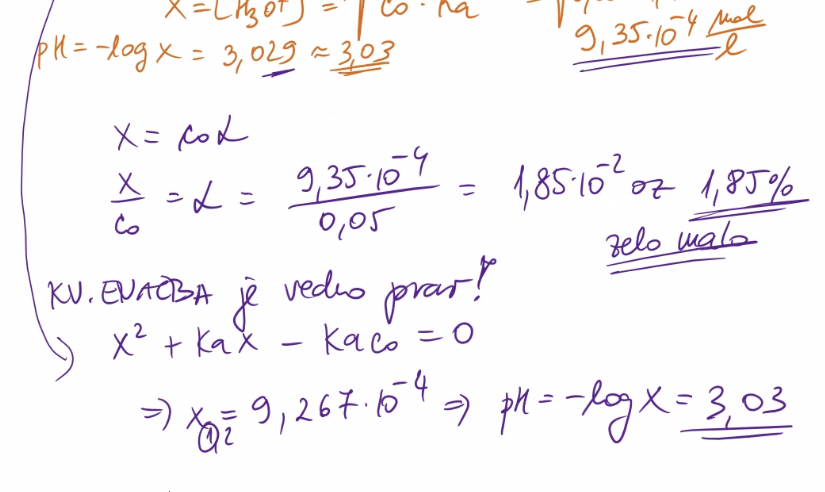 x = [H₃O⁺] = √c₀·Ka
9,35·10⁻⁴ mol/l
pH = -log x = 3,029 ≈ 3,03
x = c₀α
x/c₀ = α = 9,35·10⁻⁴/0,05 = 1,85·10⁻² oz 1,85%
zelo malo
KV. ENAČBA je vedno prav!
x² + Kax - Kac₀ = 0
⇒) x₁,₂ = 9,267·10⁻⁴ ⇒) pH = -log x = 3,03